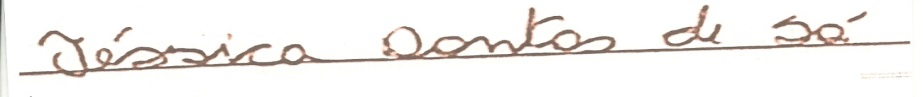 Jéssica Santos de Sá